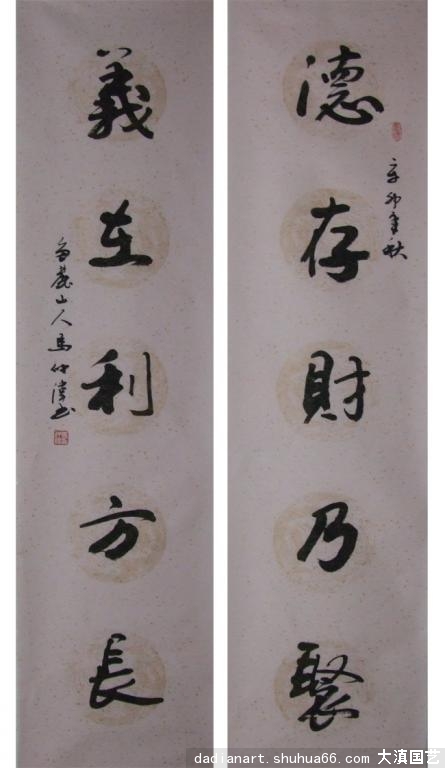 德存財乃聚
辛卯年秋
義在利方長
山人馬仲漢書
dadianart.shuhua66.com 大滇国艺